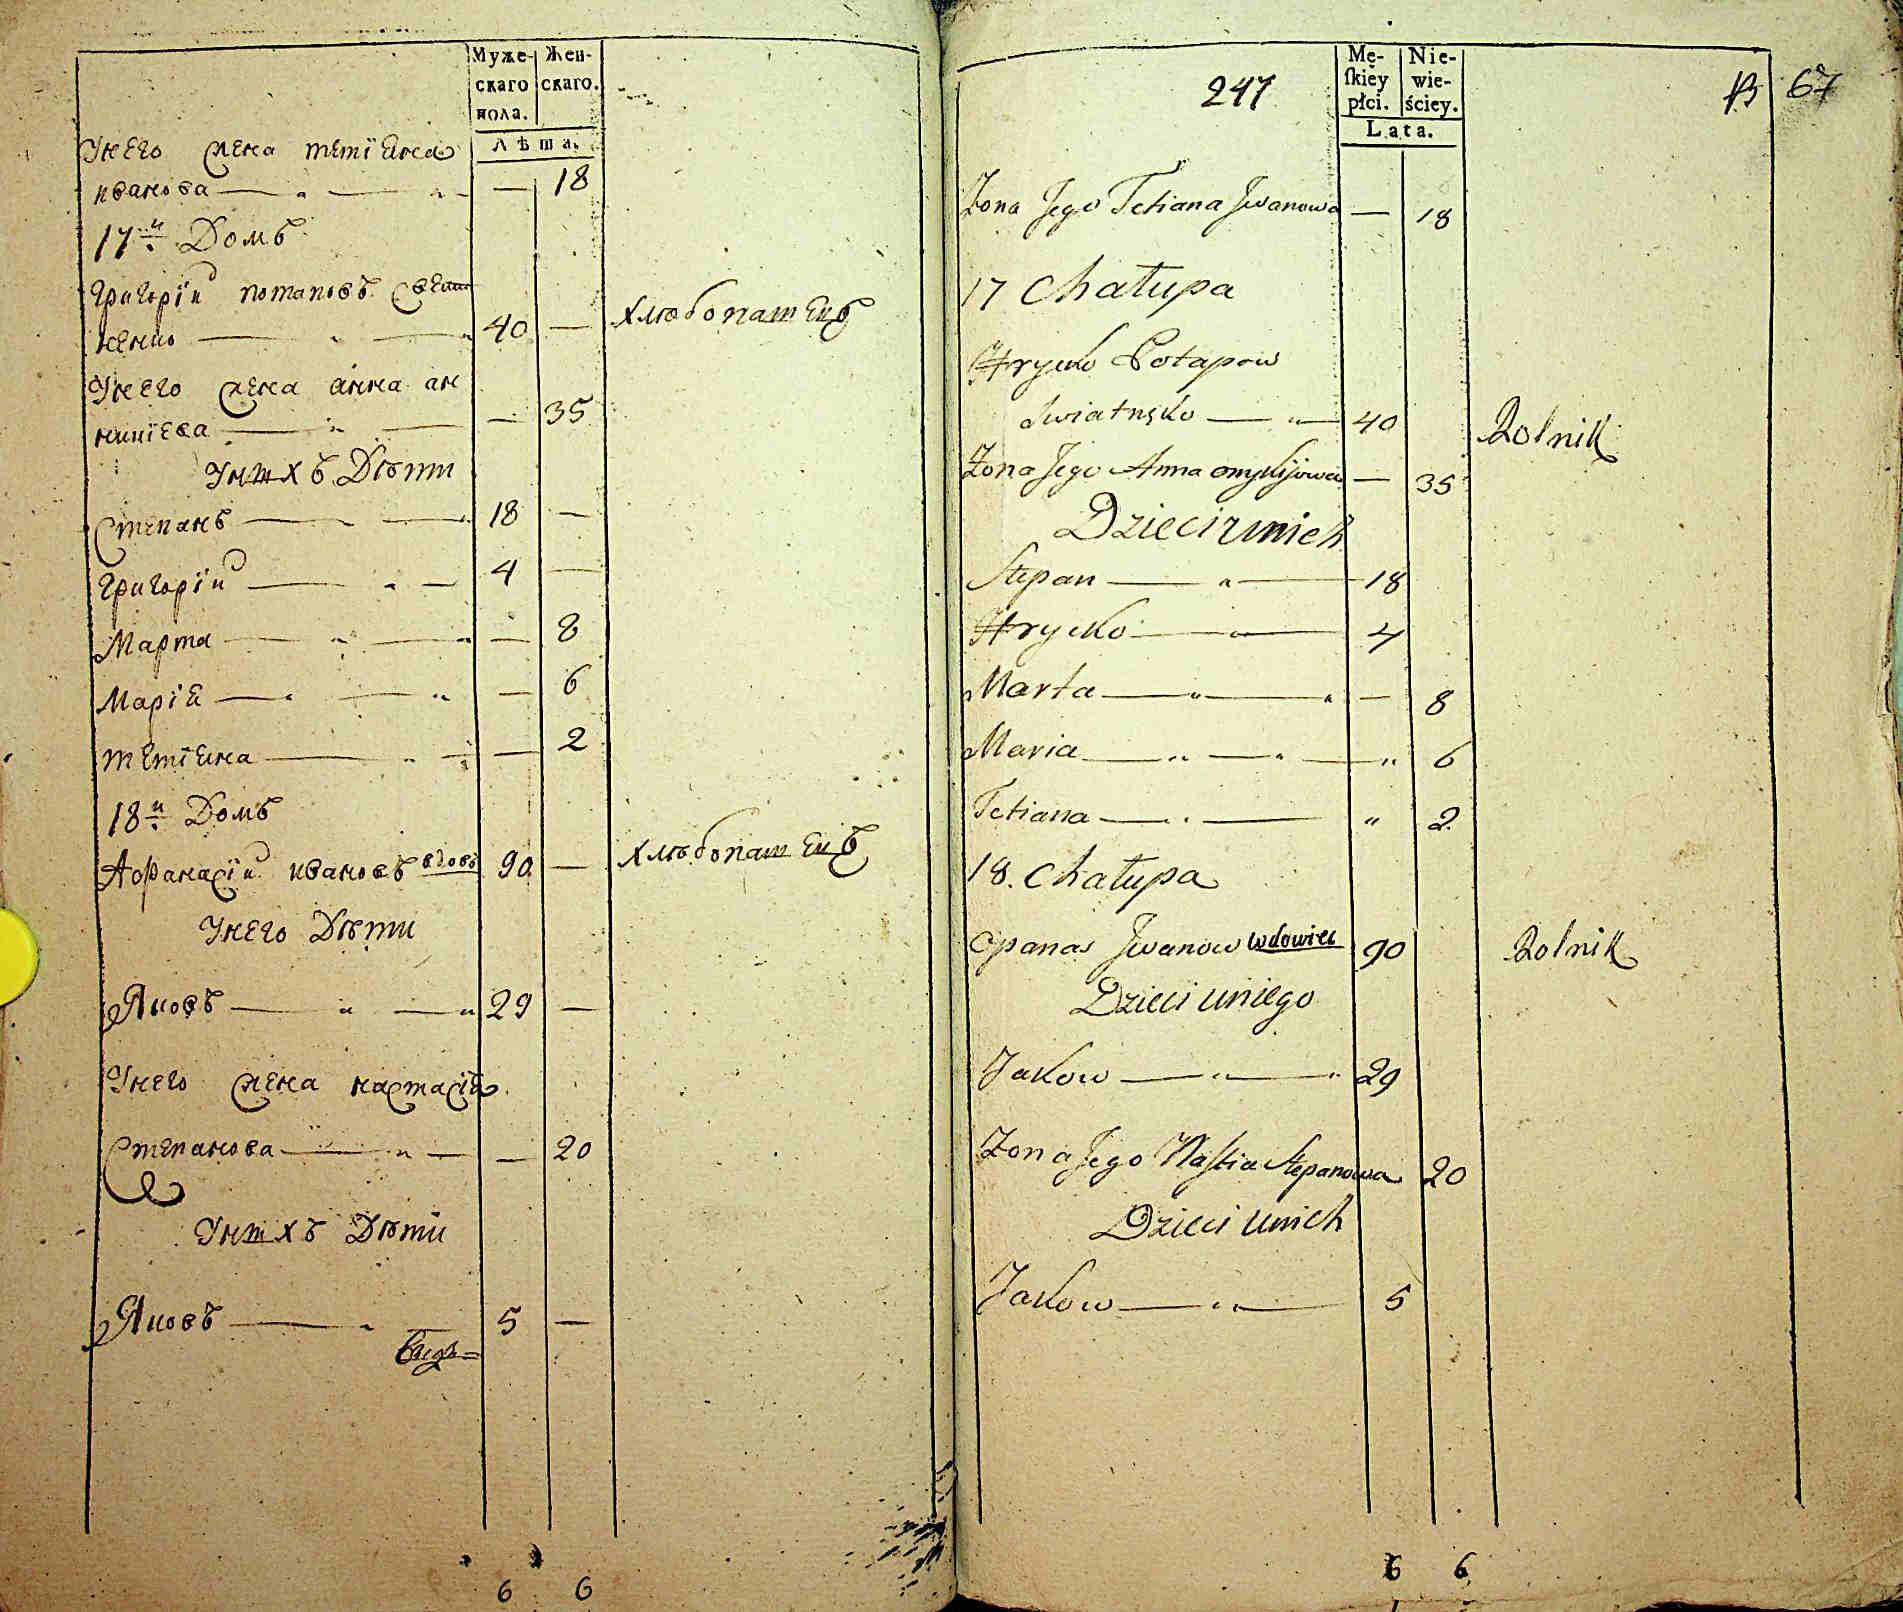 Муже-
скаго
пола.
Жен-
скаго.
Лѣта.
Унего жена тетїяна
иванова — „ — „ — — 18
17й Домъ
Григорїй потаповъ Свят
ненко — „ — „ 40 — хлѣбопашецъ
Унего жена анна ан
— „ — — 35
Унихъ Дѣти
Степанъ — „ — 18 —
Григорїй — „ — 4 —
Марта — „ — „ — 8
Марїя — „ — „ — 6
тетїяна — „ — — 2
18й Домъ
Афанасїй ивановъ вдовъ 90 — хлѣбопашецъ
Унего Дѣти
Яковъ — „ — „ 29 —
Унего жена настасїя
Степанова — „ — — 20
Унихъ Дѣти
Яковъ — „ — 5 —
6 6
247
Mę-
ſkiey
płci.
Nie-
wie-
ściey.
Lata.
67
Żona Jego Tetiana Jwanowa — 18
17 Chałupa
Hrycko Potapow
Swiatnęko — „ — 40 Rolnik
Żona Jego Anna — 35
Dzieci unich
Stepan — „ — 18
Hrycko — „ — 4
Marta — „ — „ — 8
Maria — „ — „ — „ 6
Tetiana — „ — „ 2
18. Chałupa
Opanas Jwanow wdowiec 90 Rolnik
Dzieci uniego
Jakow — „ — „ 29
Żona Jego Naſtia Stepanowa 20
Dzieci unich
Jakow — „ — 5
6 6